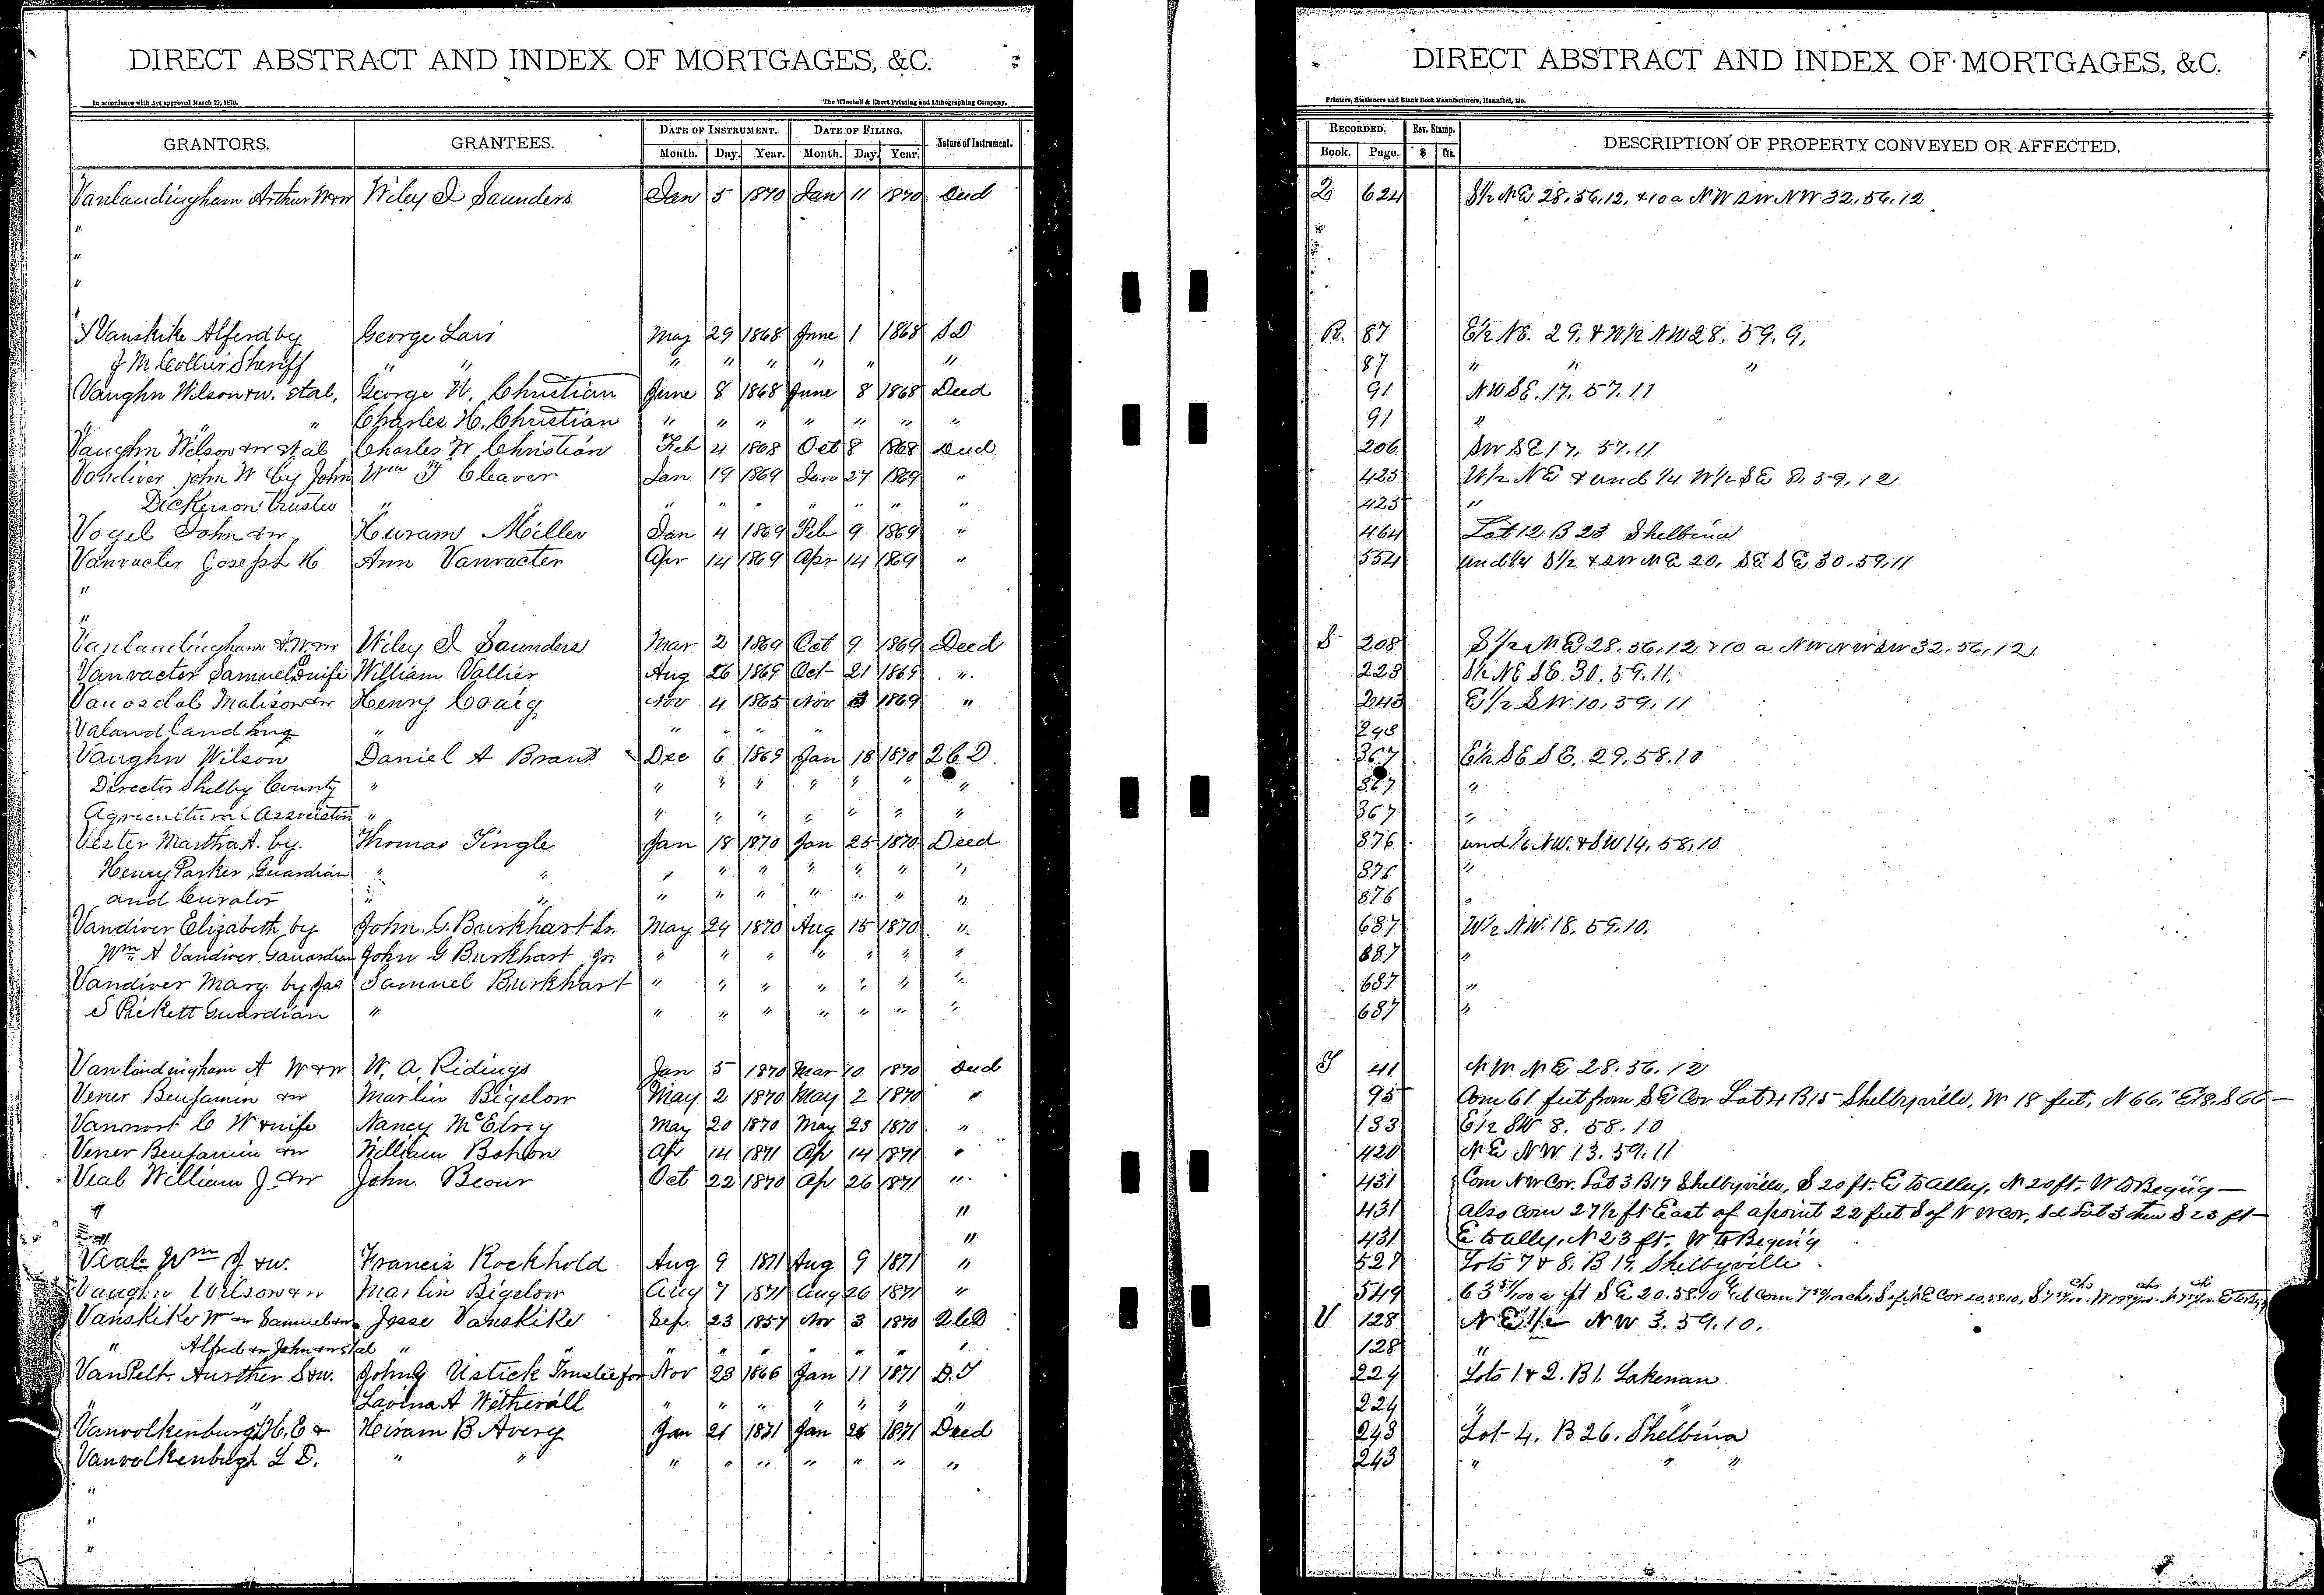 DIRECT ABSTRACT AND INDEX OF MORTGAGES, &C.
In accordance with Act approved March 25, 1870. The Winchell & Ebert Printing and Lithographing Company,
GRANTORS. GRANTEES. DATE OF INSTRUMENT. DATE OF FILING. Nature of Instrument.
Month. Day. Year. Month. Day. Year.
Vanlandingham Arthur W&w Wiley I Saunders Jan 5 1870 Jan 11 1870 Deed
"
"
"
Vanskike Alferd by George Lair May 29 1868 June 1 1868 SD
J M Collier Sheriff " " " " " " " " "
Vaughn Wilson &w. etal, George W. Christian June 8 1868 June 8 1868 Deed
" " Charles H. Christian " " " " " " "
Vaughn Wilson &w etal Charles W Christian Feb 4 1868 Oct 8 1868 Deed
Vandiver John W by John Wm T Cleaver Jan 19 1869 Jan 27 1869 "
Dickerson Trustee " " " " " " " "
Vogel John &w Huram Miller Jan 4 1869 Feb 9 1869 "
Vanvacter Joseph H Ann Vanvacter Apr 14 1869 Apr 14 1869 "
"
"
Vanlandingham A.W&w Wiley I Saunders Mar 2 1869 Oct 9 1869 Deed
Vanvacter Samuel & wife William Vallier Aug 26 1869 Oct 21 1869 "
Vanosdol Malison &w Henry Couig Nov 4 1865 Nov 3 1869 "
Valandlandhng " " " " "
Vaughn Wilson Daniel A Brant Dec 6 1869 Jan 18 1870 2 C D.
Director Shelby County " " " " " " " "
Agricultural Association " " " " " " " "
Vester Martha A. by. Thomas Tingle Jan 18 1870 Jan 25 1870 Deed
Henry Parker Guardian " " " " " " " " "
and Curator " " " " " " " " "
Vandiver Elizabeth by John. G. Burkhart Sr. May 24 1870 Aug 15 1870 "
Wm A Vandiver. Gauardian John G Burkhart Jr. " " " " " " "
Vandiver Mary by Jas Samuel Burkhart " " " " " " "
S Pickett Guardian " " " " " " " "
Vanlandingham A W&w W. A. Ridings Jan 5 1870 Mar 10 1870 Deed
Vener Benjamin &w Marlin Bigelow May 2 1870 May 2 1870 "
Vannort C W & wife Nancy McElroy May 20 1870 May 25 1870 "
Vener Benjamin &w William Bohon Ap 14 1871 Ap 14 1871 "
Veal William J &w John. Beour Oct 22 1870 Ap 26 1871 "
" "
" "
Veal Wm J &w. Francis Rockhold Aug 9 1871 Aug 9 1871 "
Vaughn Wilson &w Marlin Bigelow Aug 7 1871 Aug 26 1871 "
Vanskike Wm &w Samuel &w Jesse Vanskike Sep 23 1857 Nov 3 1870 2 C D
" Alfred &w John &w etal " " " " " " " " "
VanPelt. Aurther S&w. John G Ustick Trustee for Nov 23 1866 Jan 11 1871 D. T
" " Lavina A Witherall " " " " " " "
Vanvolkenburg H. E & Heiram B Avery Jan 26 1871 Jan 26 1871 Deed
Vanvolkenburgh L D. " " " " " " " " "
"
"
"
DIRECT ABSTRACT AND INDEX OF MORTGAGES, &C.
Printers, Stationers and Blank Book Manufacturers, Hannibal, Mo.
RECORDED. Rev. Stamp. DESCRIPTION OF PROPERTY CONVEYED OR AFFECTED.
Book. Page. $ Cts.
Q 624 S½ NE 28.56.12, & 10 a NW SW NW 32.56.12
R. 87 E½ NE. 29. & W½ NW 28. 59. 9.
87 " " "
91 NW SE. 17. 57. 11
91 "
206 SW SE 17. 57. 11
425 W½ NE & und ¼ W½ SE 8. 59. 12
425 "
464 Lot 12 B 23 Shelbina
554 und ¼ S½ & SW NE 20. SE SE 30. 59. 11
S 208 S½ NE 28. 56. 12 & 10 a NW NW SW 32. 56. 12
223 S½ NE SE. 30. 59. 11.
243 E½ SW 10. 59. 11
243
367 E½ SE SE. 29. 58. 10
367 "
367 "
376 und 1/6 NW. & SW 14. 58. 10
376 "
376 "
687 W½ NW. 18. 59. 10.
687 "
687 "
687 "
T 41 NW NE 28. 56. 12
95 Com 61 feet from SE Cor Lot 4 B 15 Shelbyville, W 18 feet, N 66. " E 18. S 66
133 E½ SW 8. 58. 10
420 NE NW 13. 59. 11
431 Com NW Cor. Lot 3 B 17 Shelbyville, S 20 ft. E to alley, N 20 ft. W to Begin'g
431 also com 27½ ft East of a point 22 feet S of NW cor, Sd Lot 3 then S 23 ft
431 E to alley, N 23 ft. W to Begin'g
527 Lots 7 & 8. B 19. Shelbyville
549 63 a pt SE 20. 58. 10
V 128 NE NW 3. 59. 10.
128 "
224 Lots 1 & 2. B 1. Lakenan
224 " "
243 Lot 4. B 26. Shelbina
243 " " "